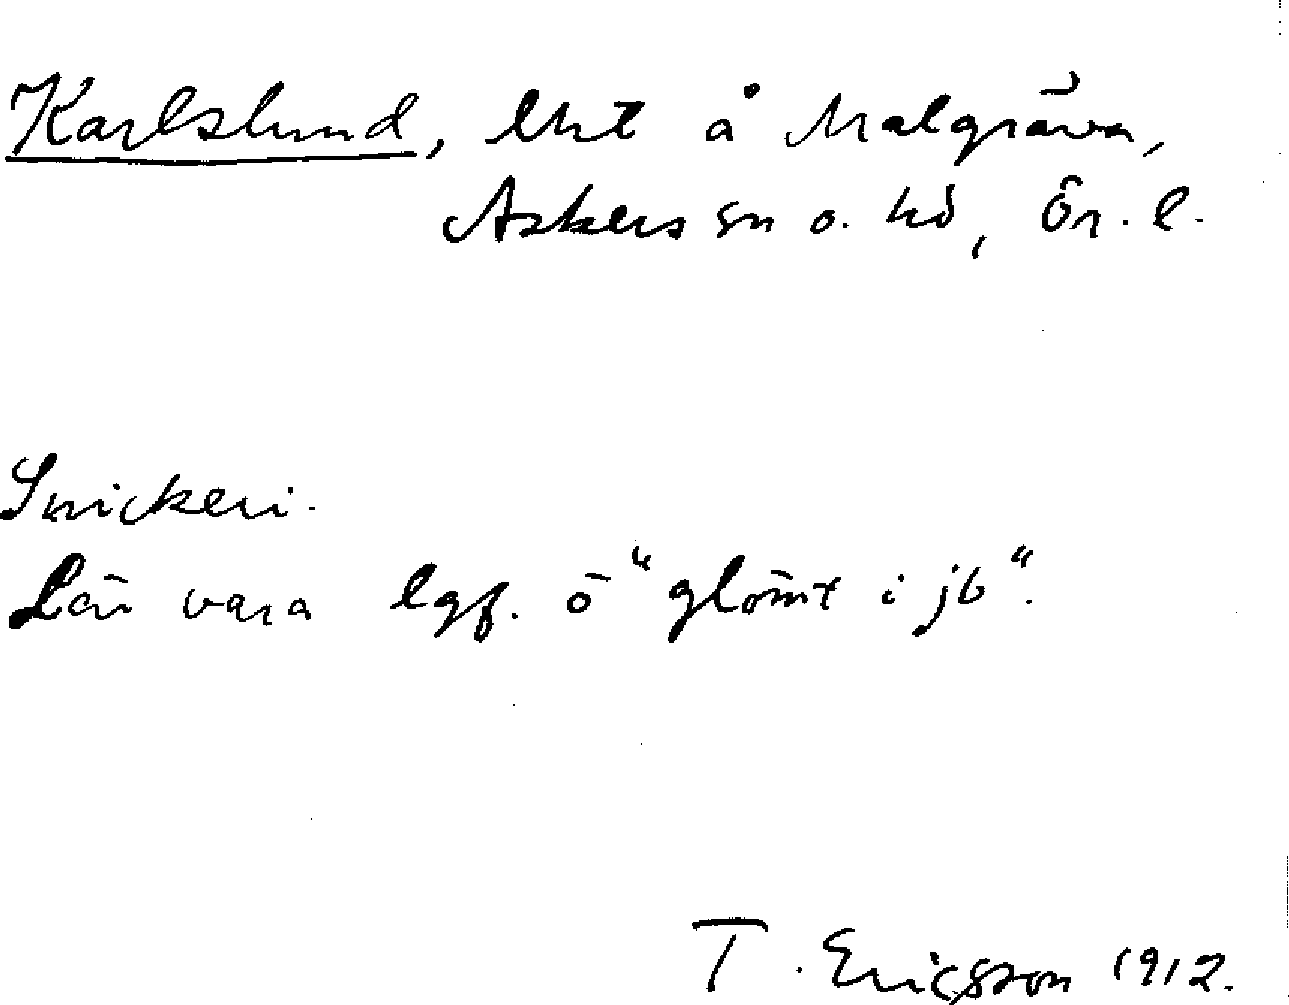 Karlslund, lht å Malgräva,
Askers sn o. hd, Ör. l.
Snickeri.
Lär vara lgf. ö "glömt i jb".
T. Ericsson 1912.